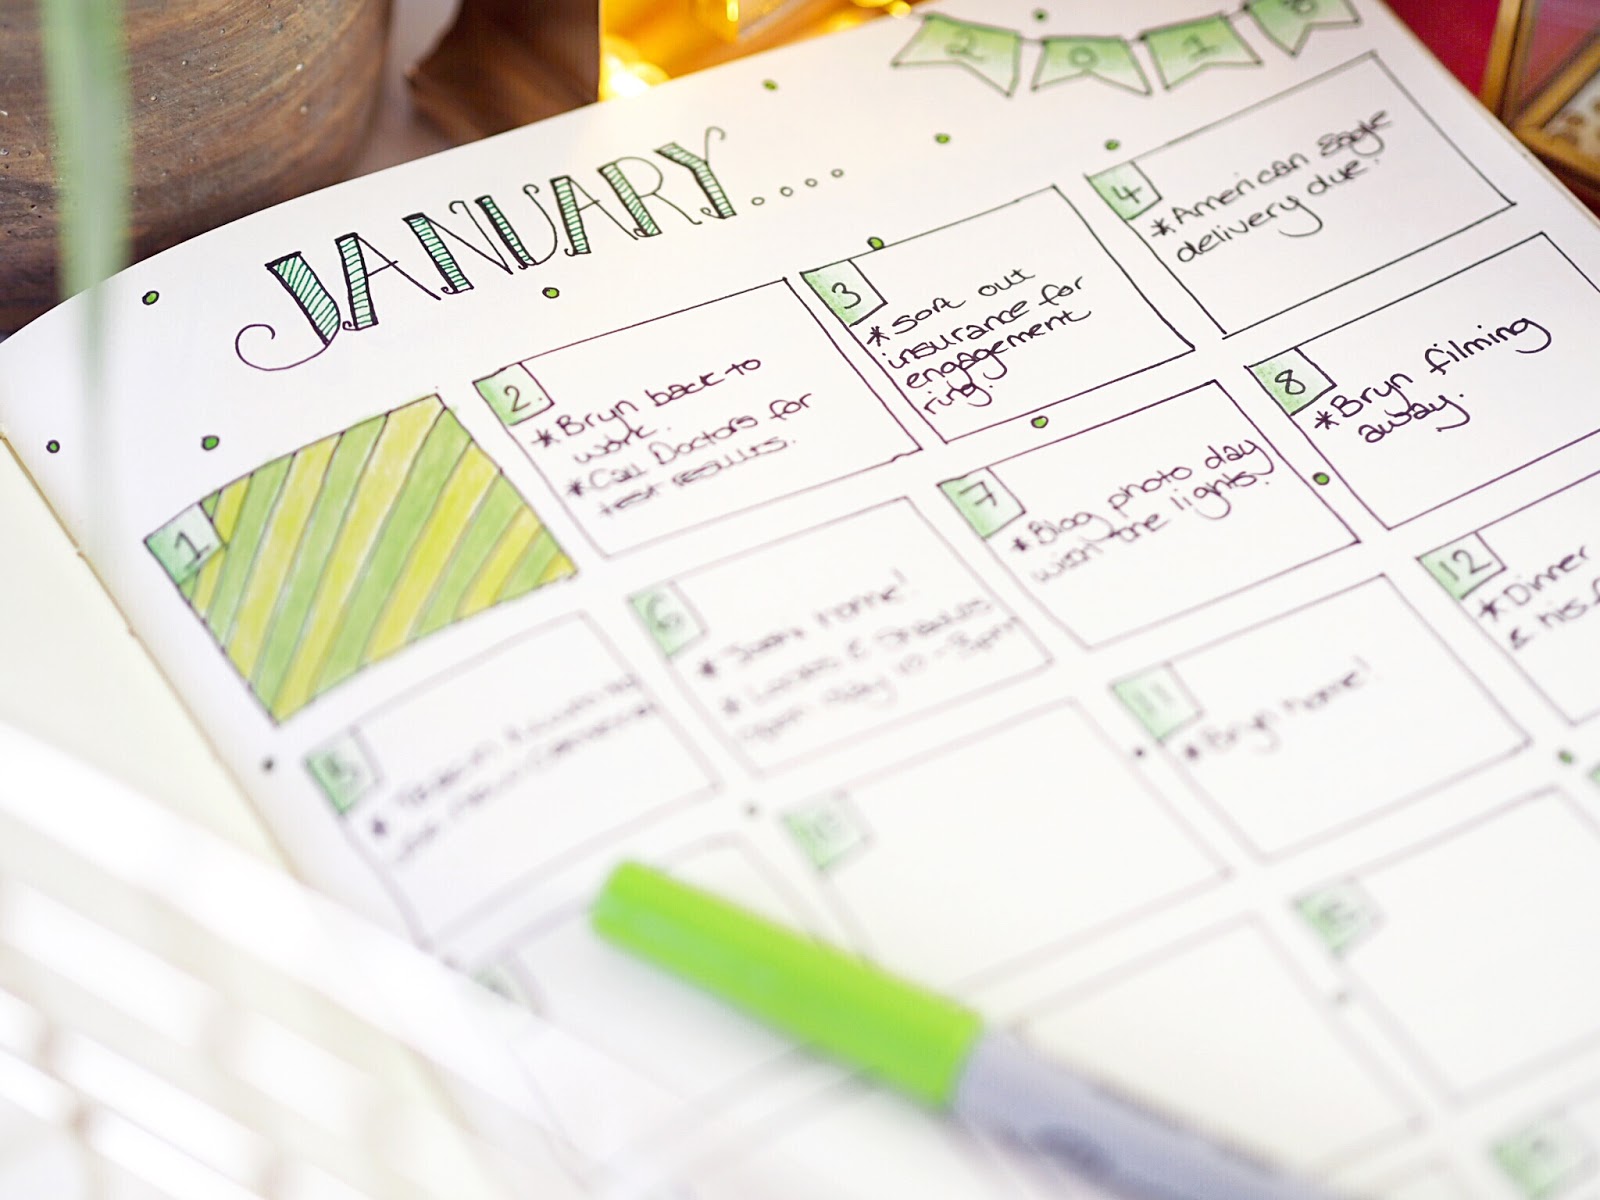 2018
JANUARY....
1
2.
*Bryn back to
work.
*Call Doctors for
test results.
3
*sort out
insurance for
engagement
ring.
4
*American Eagle
delivery due.
5
6
* home!
*
7
*Blog photo day
with the lights.
8
*Bryn filming
away.
11
*Bryn home!
12
*Dinner
& his